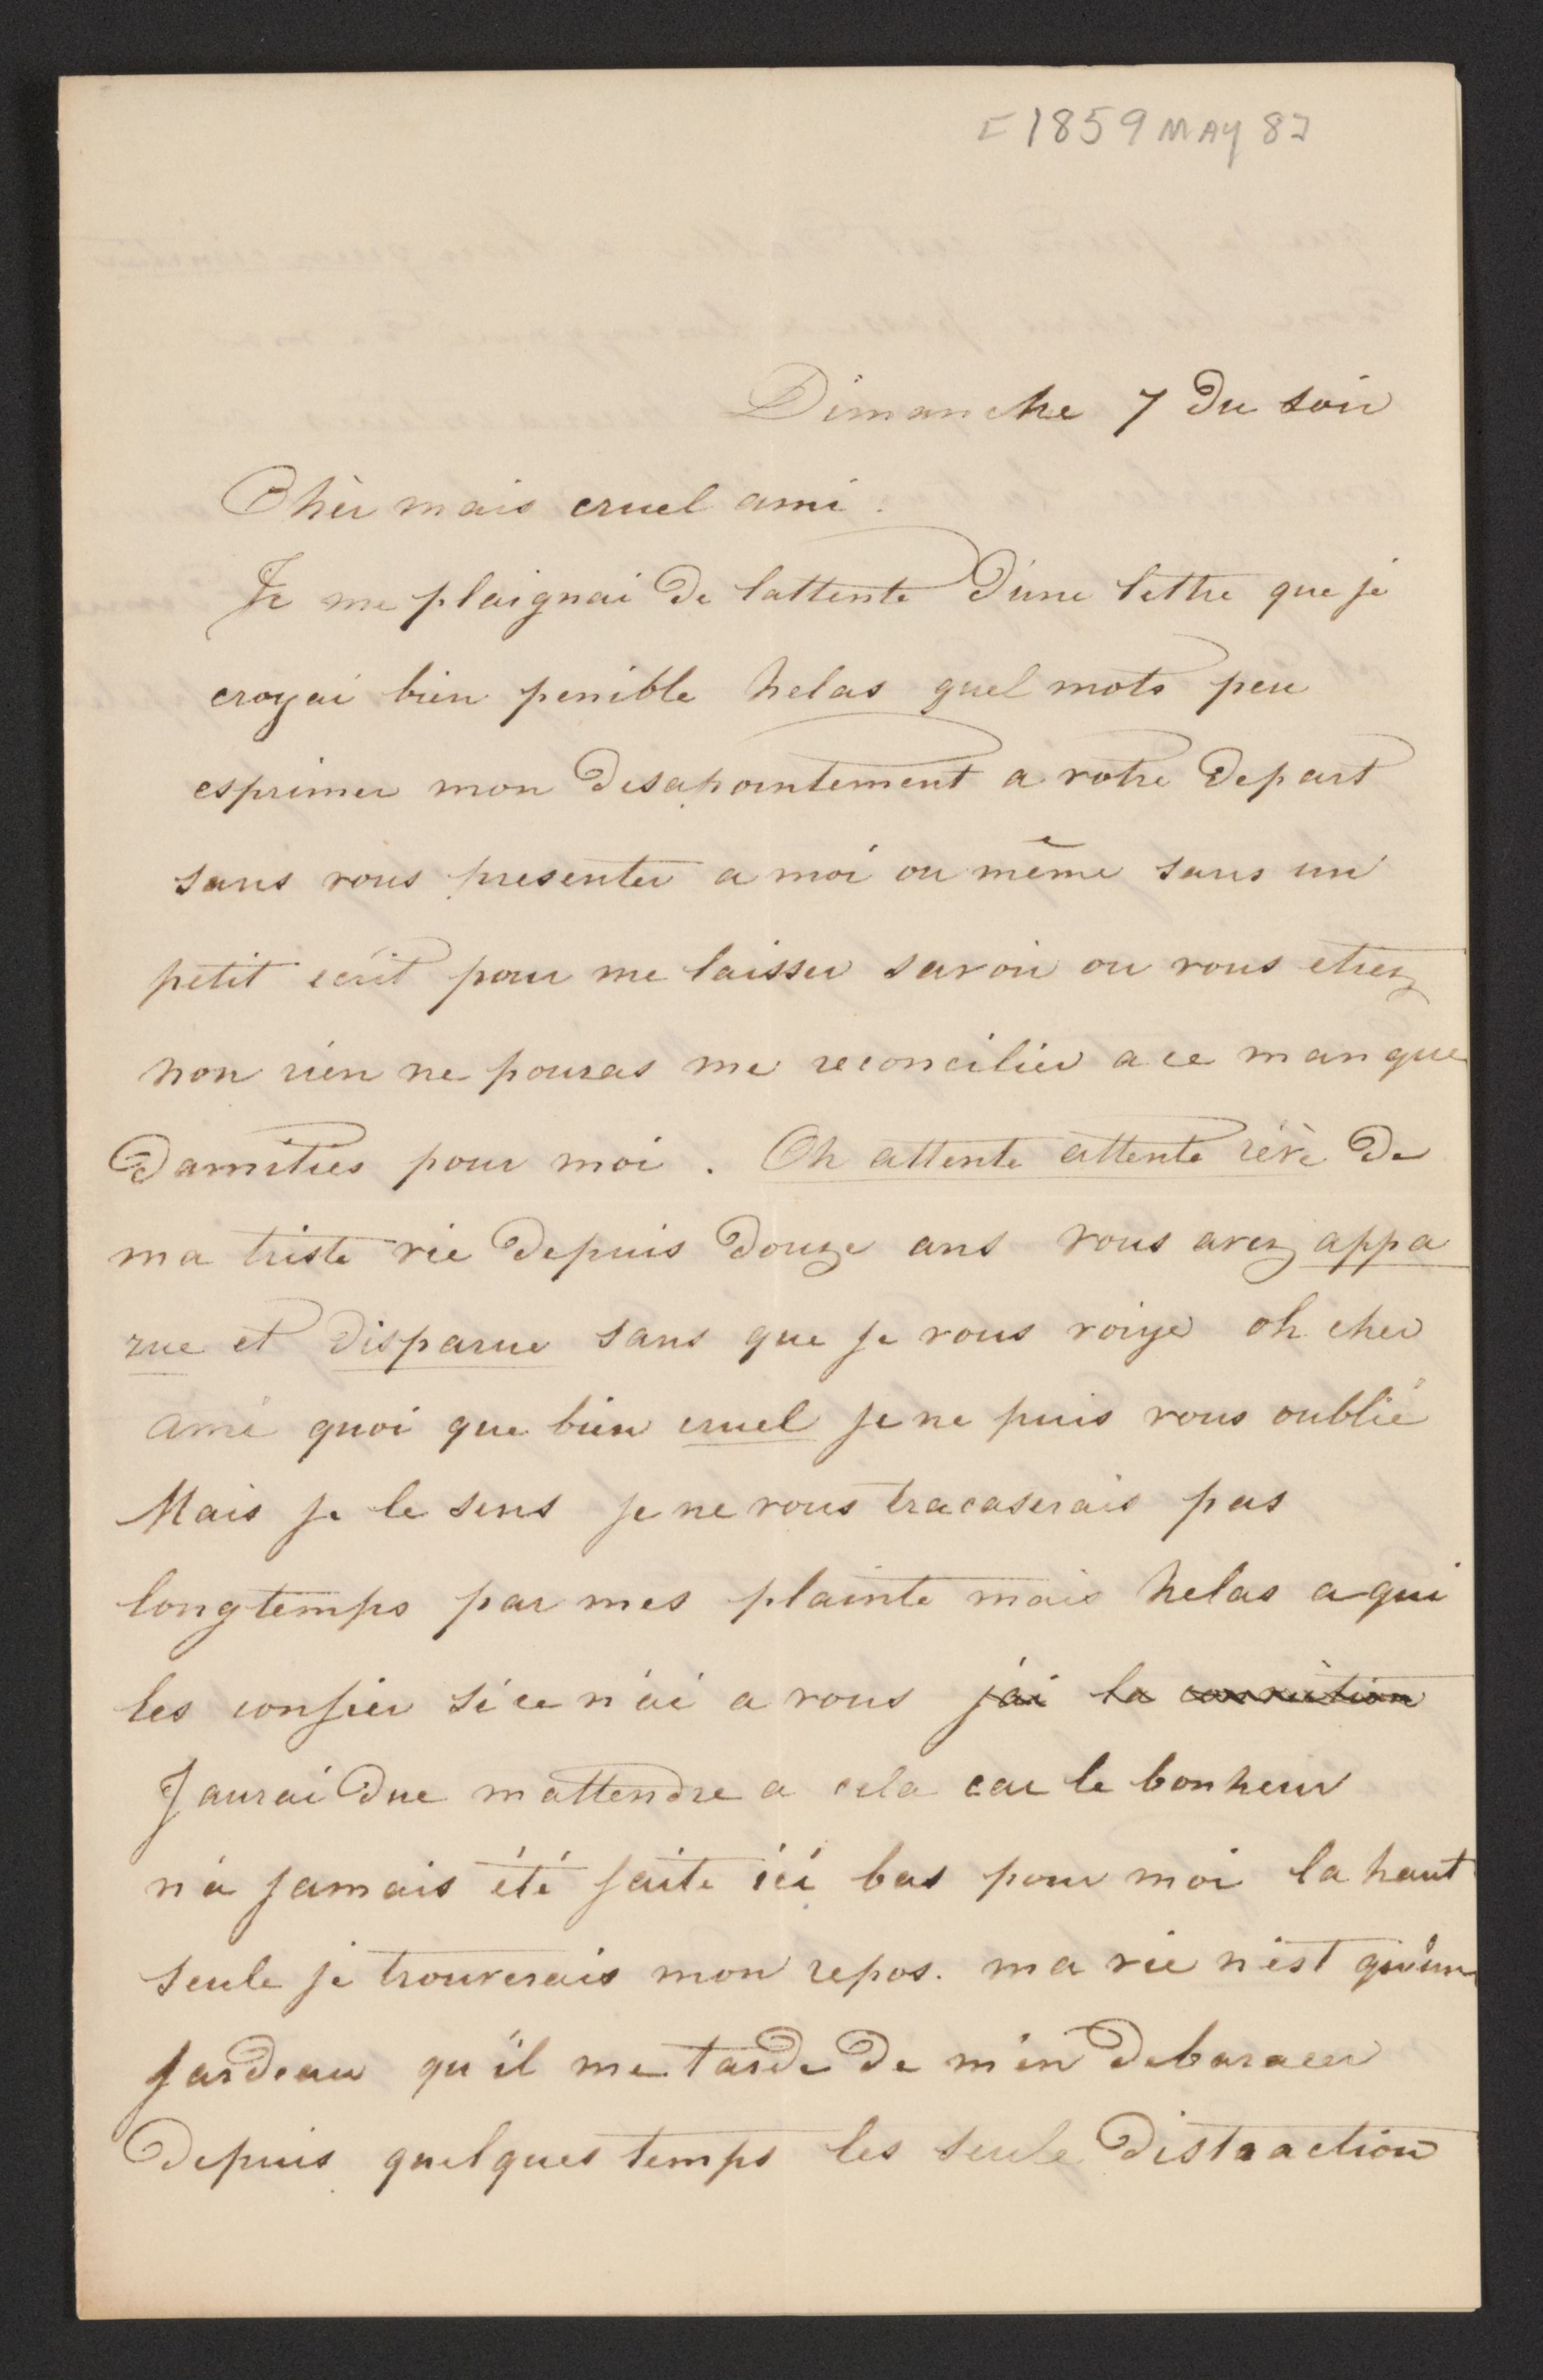 [1859 MAY 8]
Dimanche 7 du soir
Cher mais cruel ami.
Je me plaignai de lattente d'une lettre que je
croyai bien penible helas quel mots peu
esprimer mon desapointement a votre depart
sans vous presenter a moi ou même sans un
petit ecrit pour me laisser savoir ou vous etiez
non rien ne pouras me reconcilier a ce manque
damities pour moi. Oh attente attente rêve de
ma triste vie depuis douze ans vous avez appa
rue et disparue sans que je vous voiye oh cher
ami quoi que bien cruel je ne puis vous oublié
Mais je le sens je ne vous tracaserais pas
longtemps par mes plainte mais helas a qui
les confier si ce n'ai a vous j'ai la conviction
J aurai due m attendre a cela car le bonheur
n'a jamais été faite ici bas pour moi la haut
seule je trouverais mon repos. ma vie n'est qu'un
fardeau qu'il me tarde de m'en debaracer
Depuis quelques temps les seule distraction